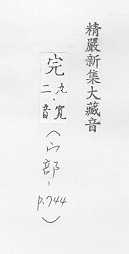 精嚴新集大藏音
完
丸・寬
二音
(宀部-
p.744)